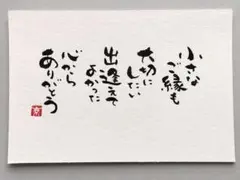 小さな
ご縁も
大切に
したい
出逢えて
よかった
心から
ありがとう